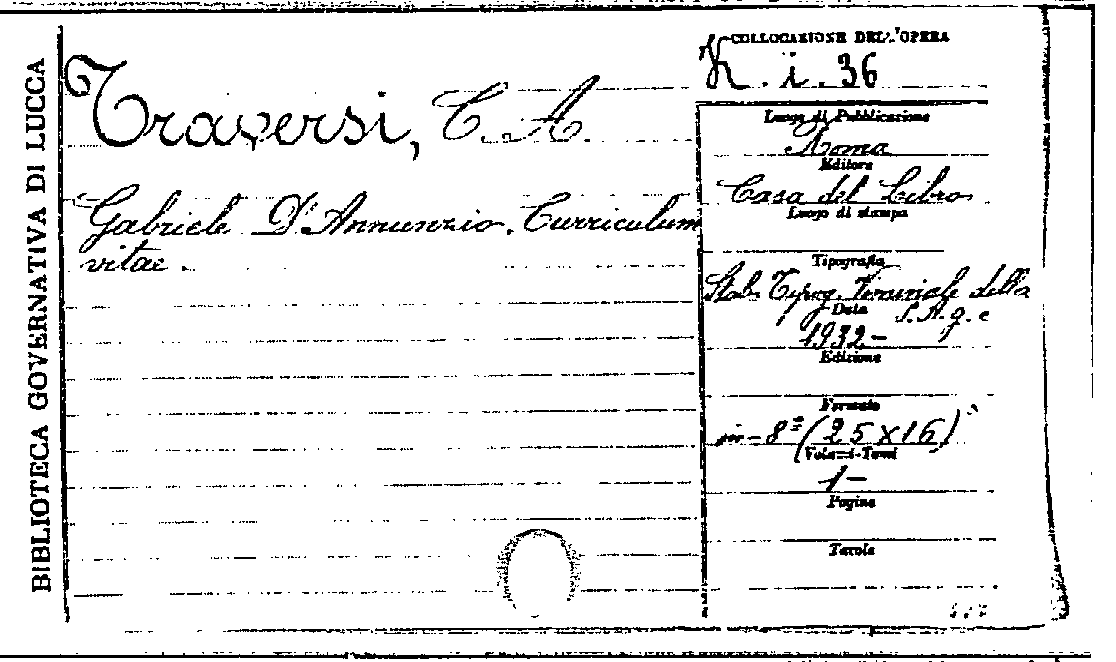 BIBLIOTECA GOVERNATIVA DI LUCCA
Traversi, C. A.
Gabriele D'Annunzio. Curriculum
vitae.
COLLOCAZIONE DELL'OPERA
K. i. 36
Luogo di Pubblicazione
Roma
Editore
Casa del Libro
Luogo di stampa
Tipografia
Stab. Tipog. della
Data S.A.g.e
1932-
Edizione
Formato
in-8º (25x16)
Volumi-Tomi
1-
Pagine
Tavole